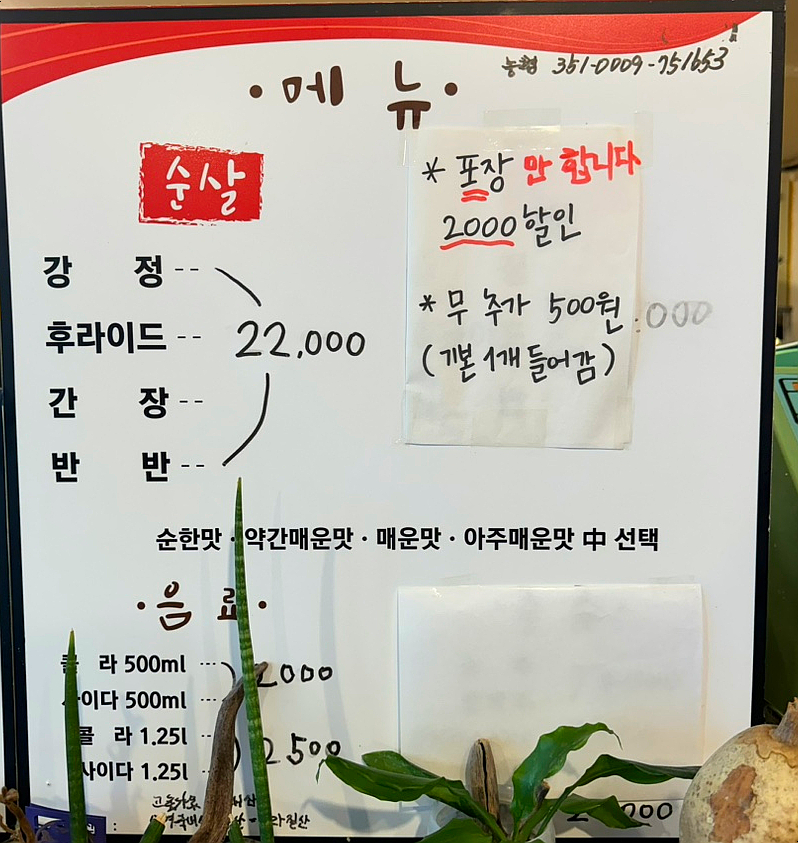 농협 351-0009-751653
·메 뉴·
순살
* 포장 만 합니다
2000 할인
* 무 추가 500원
(기본 1개 들어감)
000
강 정 --
후라이드 -- 22,000
간 장 --
반 반 --
순한맛 · 약간매운맛 · 매운맛 · 아주매운맛 中 선택
·음 료·
콜 라 500ml ··· 2000
사이다 500ml ···
콜 라 1.25l ··· 2500
사이다 1.25l ···
000